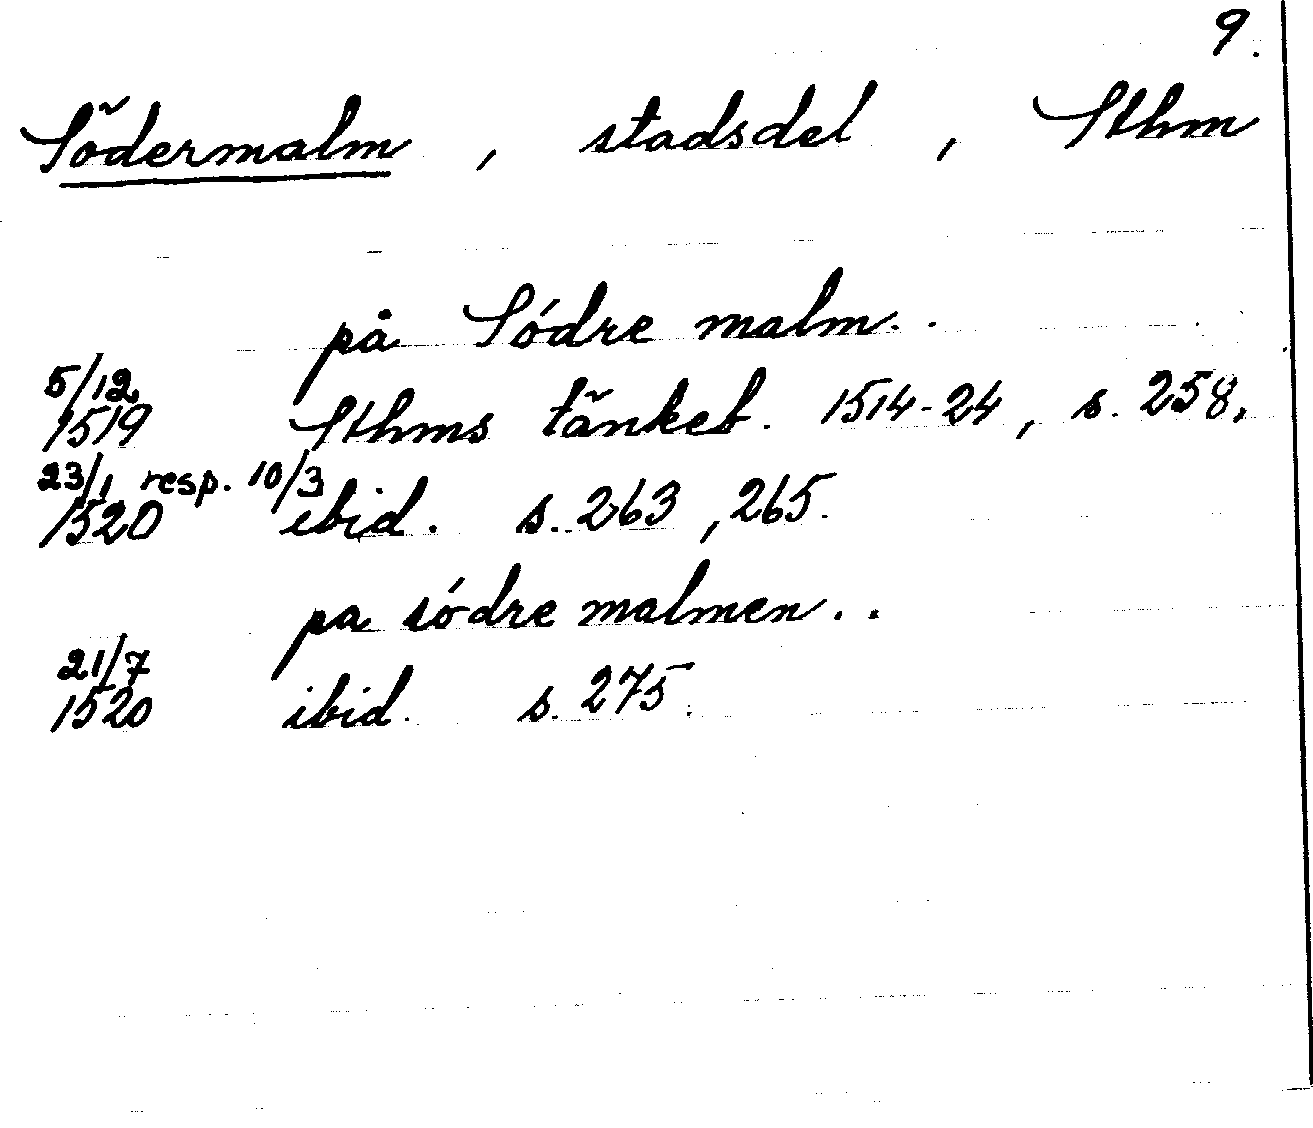 9.
Södermalm, stadsdel, Sthm
på Sódre malm..
5/12
1519 Sthms tänkeb. 1514-24, s. 258,
23/1 resp. 10/3
1520 ibid. s. 263, 265.
pa sódre malmen..
21/7
1520 ibid. s. 275.